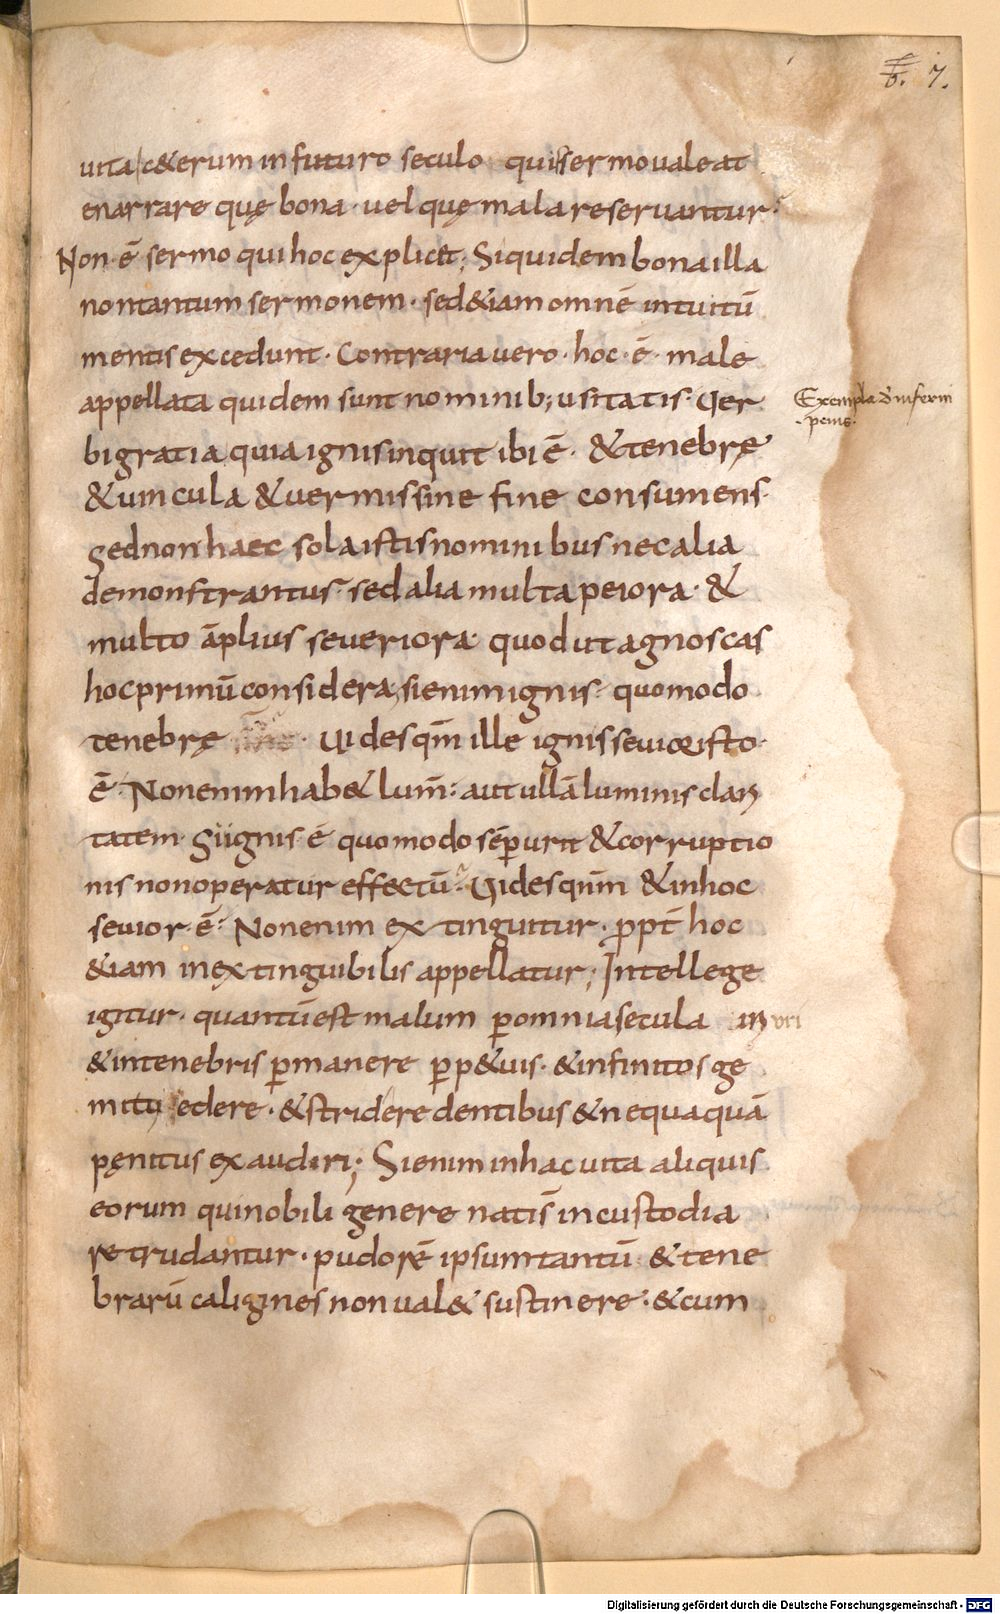 6. 7.
uita c&erum in futuro seculo quis sermo ualeat
enarrare quę bona · uel quę mala reseruantur ·
Non · ē sermo qui hoc explicet ; Siquidem bona illa
non tantum sermonem · sed &iam omnē intuitū
mentis excedunt · Contraria uero · hoc · ē · male
appellata quidem sunt nominib; usitatis · Uer
Exempla d̄ inferni
penis ·
bi gratia quia ignis inquit ibi ē · & tenebrę
& uincula & uermis sine fine consumens ·
Sed non haec sola istis nominibus nec alia
demonstrantus · sed alia multa peiora · &
multo āplius seueriora · quod ut agnoscas
hoc primū considera, si enim ignis · quomodo
tenebrę · Uides qm̄ ille ignis seuior isto ·
ē · Non enim hab& lum̄ : aut ullā luminis clari
tatem · Si ignis · ē quomodo sēp urit & corruptio
nis non operatur effectū · Uides qm̄ & in hoc
seuior · ē · Non enim extinguitur · ꝓpt̄ hoc
&iam inextinguibilis appellatur ; Intellege
igitur · quantū est malum ꝑ omnia secula uri
& in tenebris ꝑmanere ꝑp&uis · & infinitos ge
mitus edere · & stridere dentibus & nequaquā
pęnitus exaudiri ; Si enim in hac uita aliquis
eorum qui nobili genere natis̄ in custodia
retrudantur · pudorē ipsum tantū & tene
brarū caligines non ual& sustinere · & cum
Digitalisierung gefördert durch die Deutsche Forschungsgemeinschaft - DFG